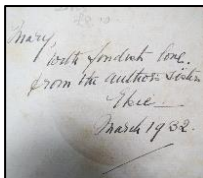 Mary,
with fondest love.
from the authors sister
Elsie
March 1932.